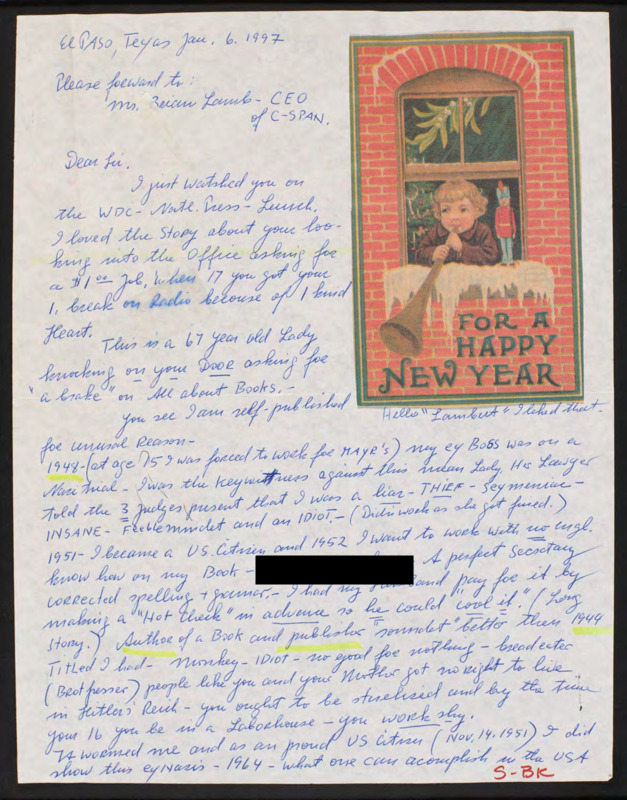 El Paso, Texas Jan. 6. 1997
Please forward to:
Mr. Brian Lamb - CEO
of C-SPAN.
Dear Sir.
I just watshed you on
the WDC - Natl. Press - Lunsh.
I loved the Story about your loo-
king into the Office asking for
a $1 00 Job, When 17 you got your
1, break on Radio because of 1 kind
Heart.
This is a 67 year old Lady
knocking on your Door asking for
"a brake" on All about Books. -
you see I am self-published
FOR A
HAPPY
NEW YEAR
Hello "Lambert" I liked that -
for unusual Reason -
1948 - (at age 15 I was forced to work for MAYR's) my ex Boss was on a
Nazi trial - I was the keywitness against this mean Lady. Her Lawyer
told the 3 judges present that I was a liar - THIEF -
INSANE - Feebleminded and an IDIOT. - (Didn't work as she got fined.)
1951 - I became a US. Citizen and 1952 I want to work with no engl.
know how on my Book - A perfect Secretary
corrected spelling + grammar - I had my Husband "pay for it by
making a "Hot Check" in advance so he could "cool it." (Long
Story.) Author of a Book and publisher "soundet" better then 1944
Titled I had - Monkey - IDIOT - no good for nothing - breadeater
(Brotfresser) people like you and your Mother got no right to live
in Hitler's Reich - you ought to be sterelised and by the time
your 16 you be in a Laborhouse - you work shy.
It worried me and as an proud US Citizen (Nov. 14. 1951) I did
show this ex Nazis - 1964 - what one can acomplish in the USA
S-BK